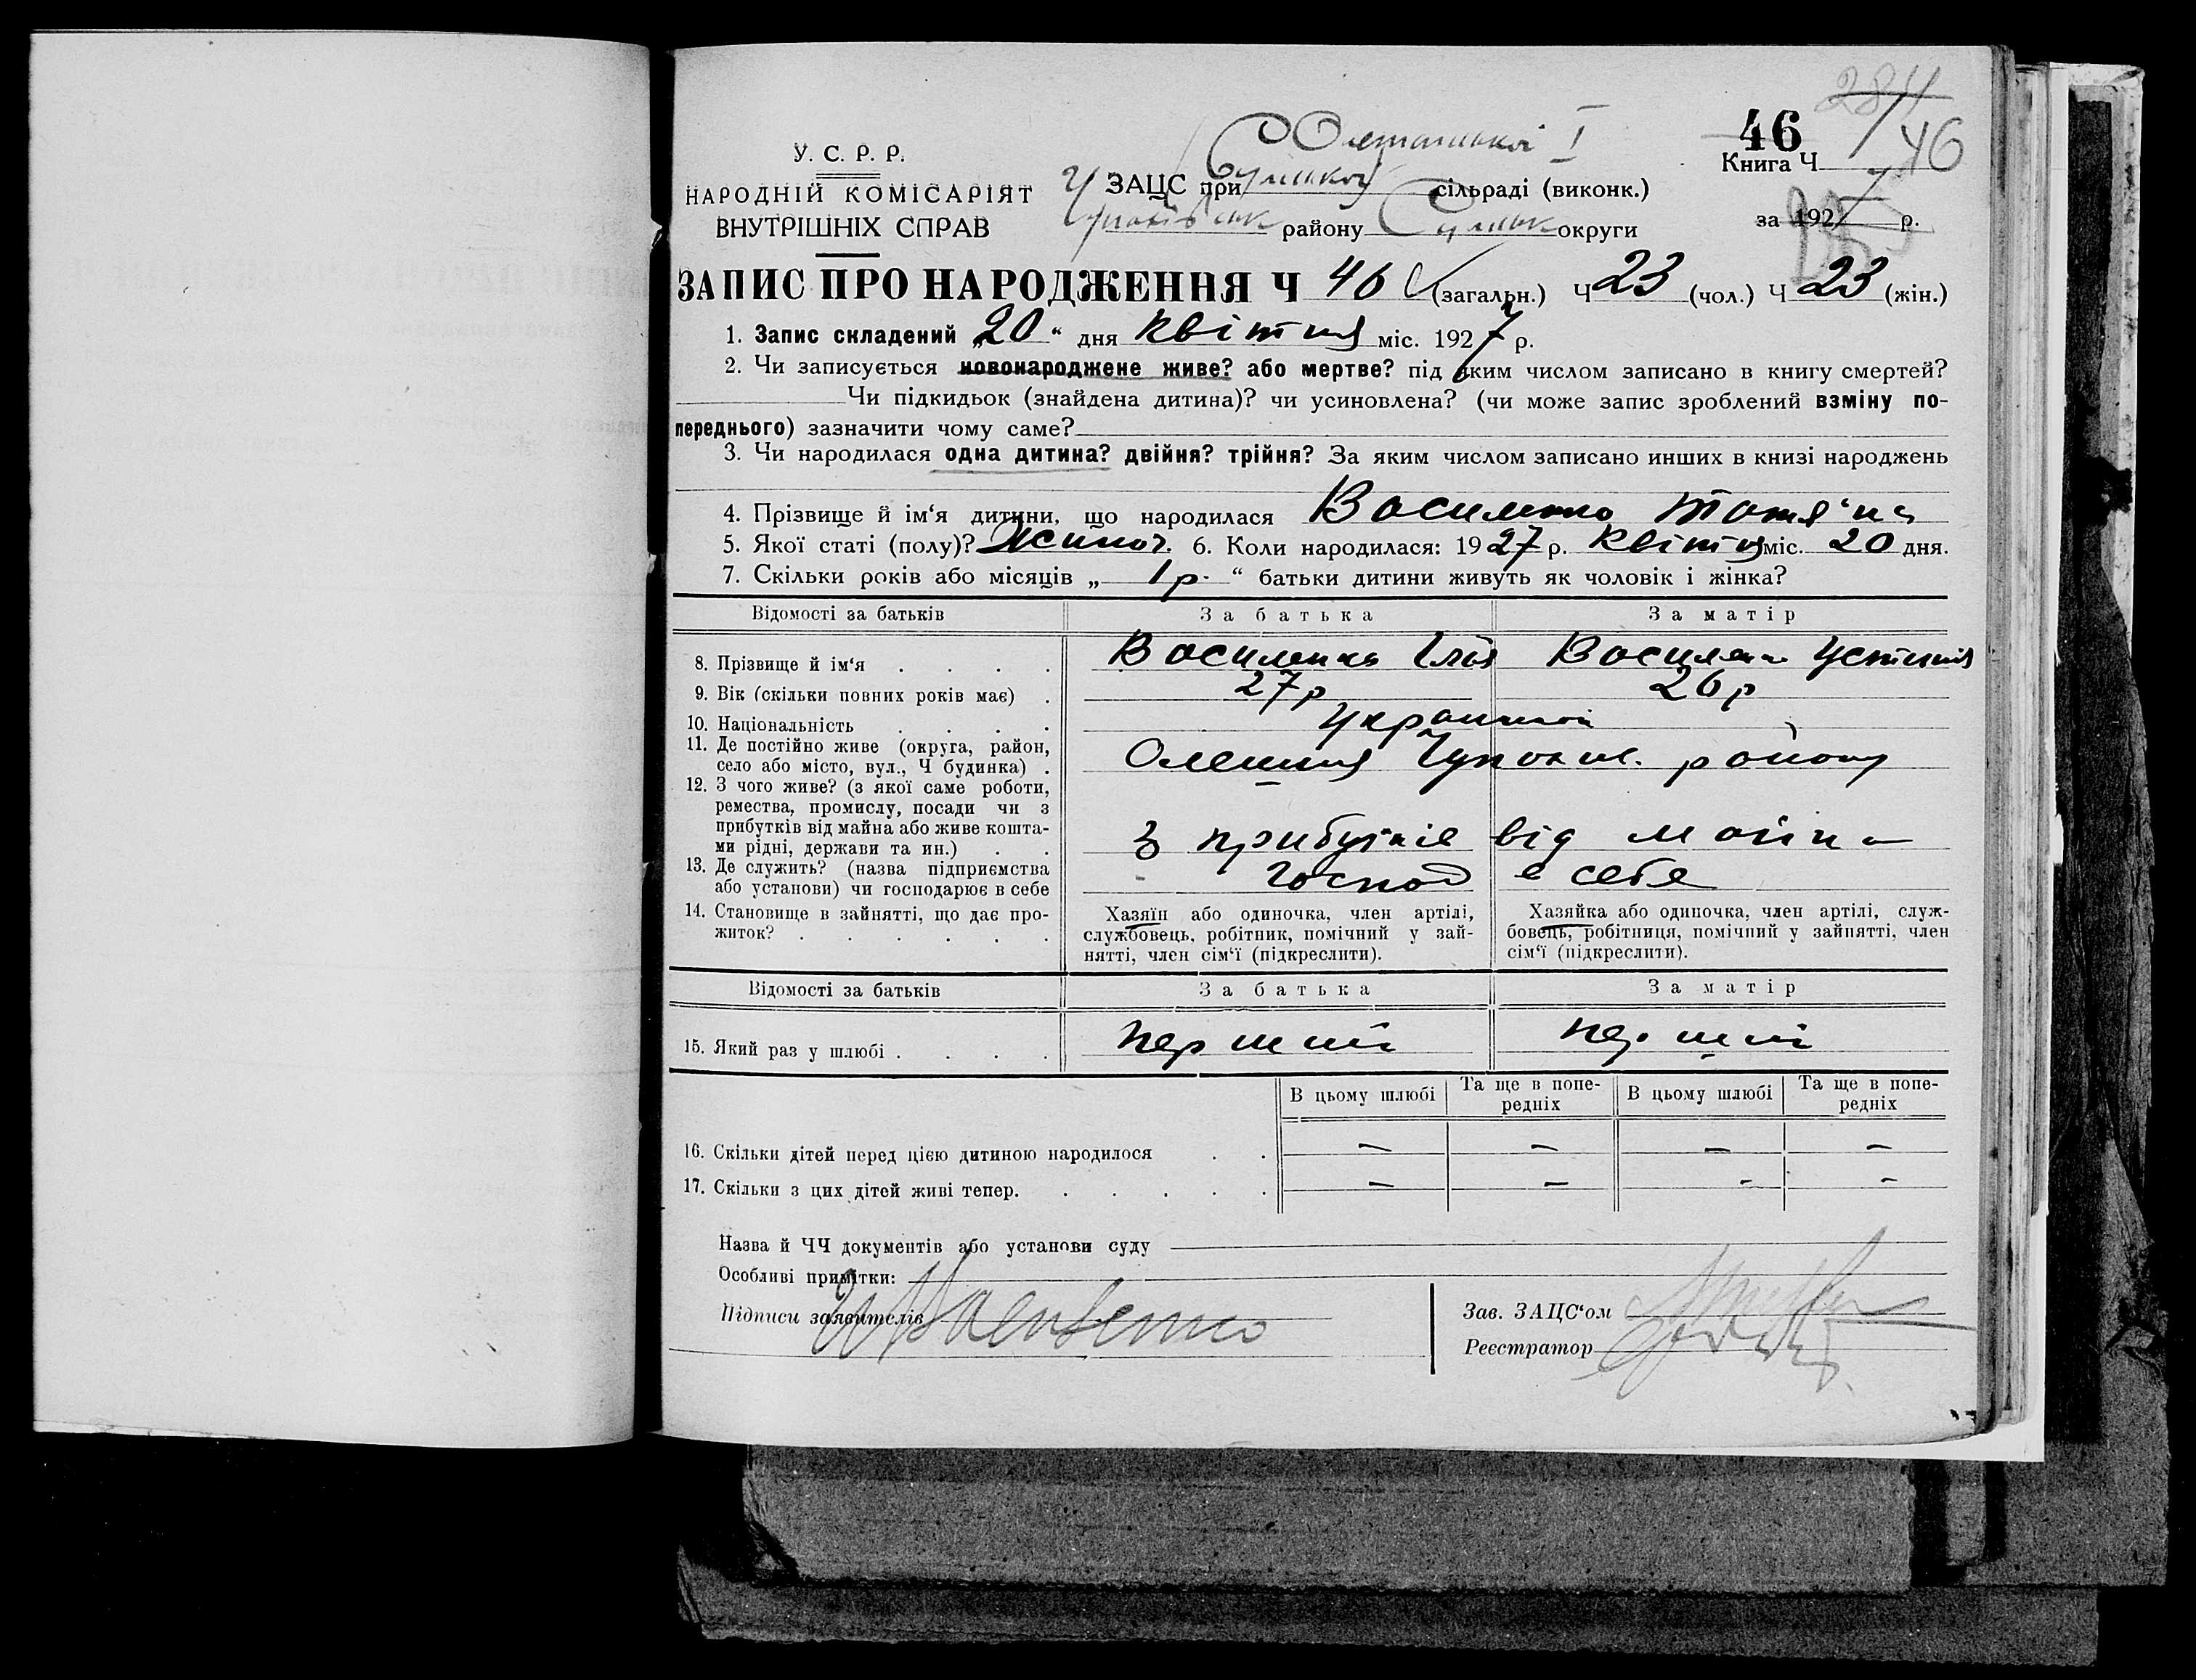 284
46
46
У. С. Р. Р.
НАРОДНІЙ КОМІСАРІЯТ
ВНУТРІШНІХ СПРАВ
I
Книга Ч
ЗАЦС при сільраді (виконк.)
району Сумськ округи
за 1927 р.
ЗАПИС ПРО НАРОДЖЕННЯ Ч 46 (загальн.) Ч 23 (чол.) Ч 23 (жін.)
1. Запис складений „20“ дня квітня міс. 1927 р.
2. Чи записується новонароджене живе? або мертве? під яким числом записано в книгу смертей?
Чи підкидьок (знайдена дитина)? чи усиновлена? (чи може запис зроблений взміну по-
переднього) зазначити чому саме?
3. Чи народилася одна дитина? двійня? трійня? За яким числом записано инших в книзі народжень
4. Прізвище й ім‘я дитини, що народилася Василенко Тотя‘на
5. Якої статі (полу)? Жиноч. 6. Коли народилася: 1927 р. квітня міс. 20 дня.
7. Скільки років або місяців „ 1 р. “ батьки дитини живуть як чоловік і жінка?
Відомості за батьків За батька За матір
8. Прізвище й ім‘я . . . . Василенко Ілья Василенко Устиния
9. Вік (скільки повних років має) . 27 р 26 р
10. Національність . . . .
11. Де постійно живе (округа, район,
село або місто, вул., Ч будинка) . Олешня району
12. З чого живе? (з якої саме роботи,
ремества, промислу, посади чи з
прибутків від майна або живе кошта-
ми рідні, держави та ин.) . . З прибутків від майна
13. Де служить? (назва підприємства
або установи) чи господарює в себе Господ в себе
14. Становище в зайнятті, що дає про-
житок? . . . . . .
Хазяїн або одиночка, член артілі,
службовець, робітник, помічний у зай-
нятті, член сім‘ї (підкреслити).
Хазяйка або одиночка, член артілі, служ-
бовець, робітниця, помічний у зайнятті, член
сім‘ї (підкреслити).
Відомості за батьків За батька За матір
15. Який раз у шлюбі . . . . перший перший
В цьому шлюбі Та ще в попе-редніх В цьому шлюбі Та ще в попе-редніх
16. Скільки дітей перед цією дитиною народилося . . — — — —
17. Скільки з цих дітей живі тепер. . . . . . — — - -
Назва й ЧЧ документів або установи суду
Особливі примітки:
Підписи заявителів
Зав. ЗАЦС‘ом
Реєстратор